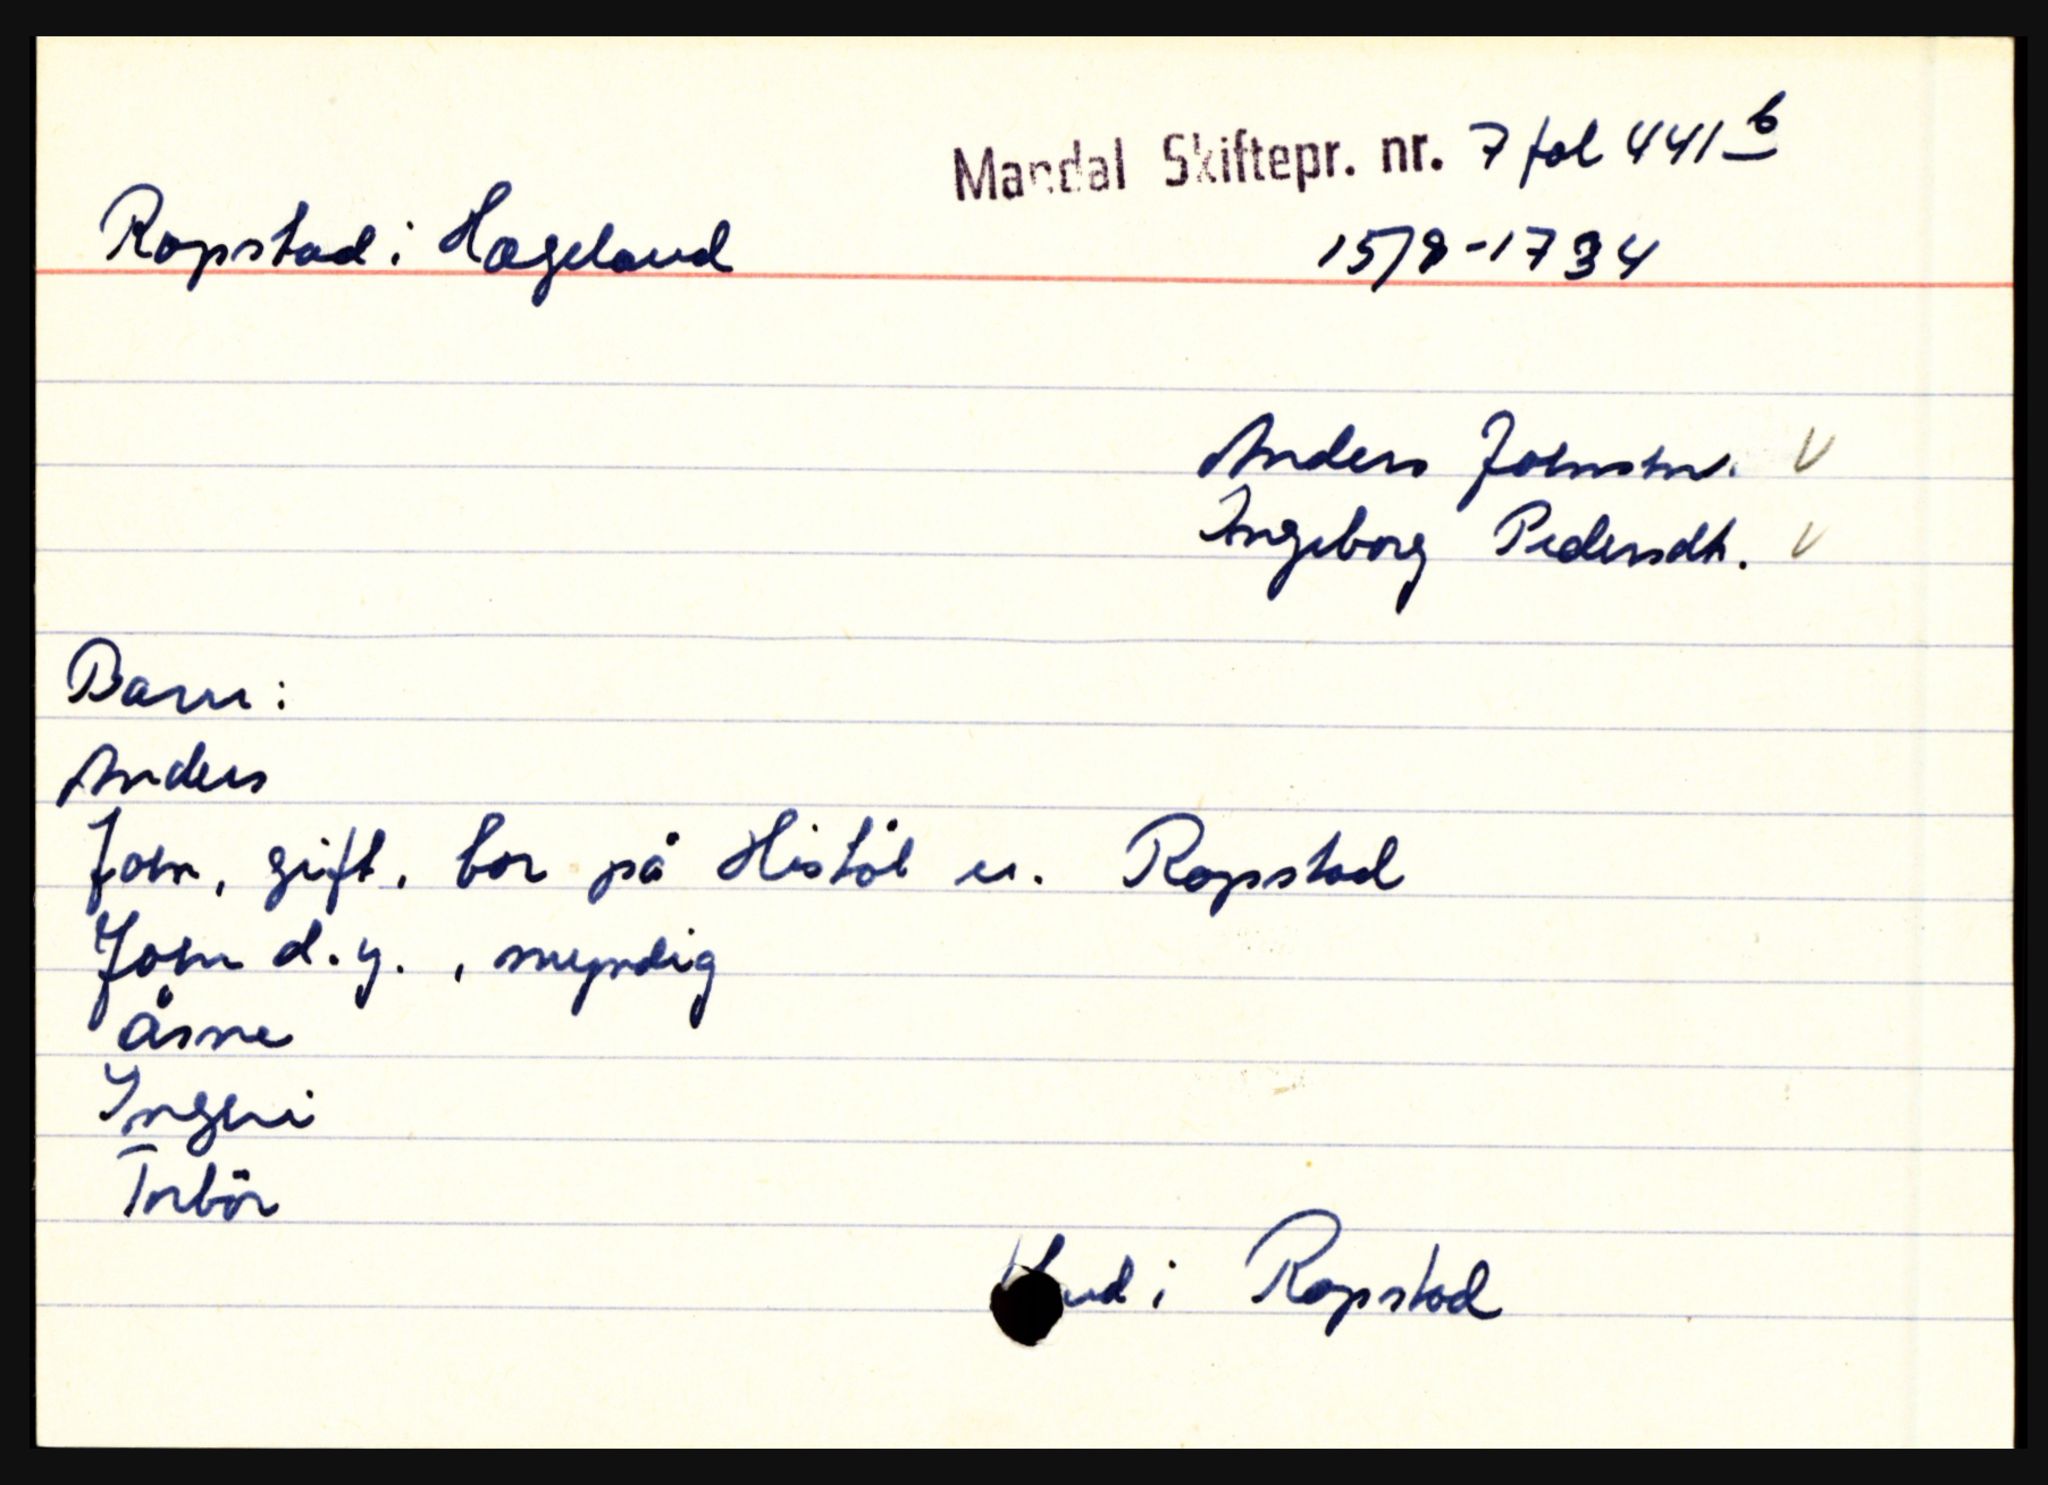 Mandal Skiftepr. nr. 7 fol 441 b
Ropstad i Hægeland 15/9-1734
Anders Johnsøn. V
Ingeborg Pedersdt. V
Barn:
Anders
John, gift, bor på Histöl u. Ropstad
John d.y., myndig
Åsne
Ingeri
Torbör
i Ropstad